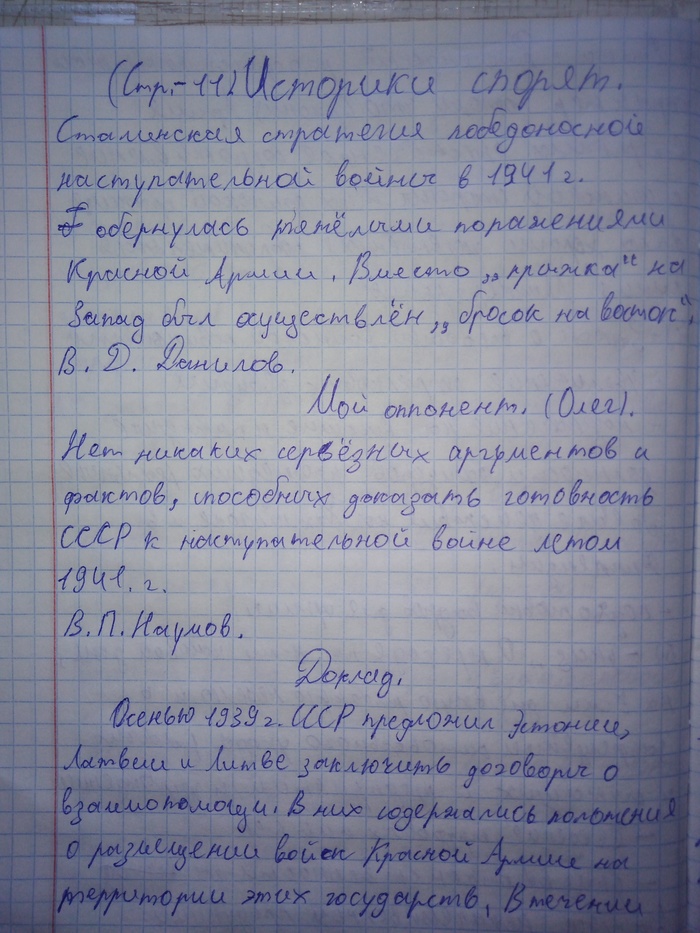 (Стр.-11) Историки спорят.
Сталинская стратегия победоносной
наступательной войны в 1941 г.
обернулась тяжёлыми поражениями
Красной Армии. Вместо „прыжка“ на
Запад был осуществлён „бросок на восток“.
В. Д. Данилов.
Мой оппонент. (Олег).
Нет никаких серьёзных аргументов и
фактов, способных доказать готовность
СССР к наступательной войне летом
1941. г.
В.П. Наумов.
Доклад.
Осенью 1939 г. СССР предложил Эстонии,
Латвии и Литве заключить договоры о
взаимопомощи. В них содержались положения
о размещении войск Красной Армии на
территории этих государств, В течении